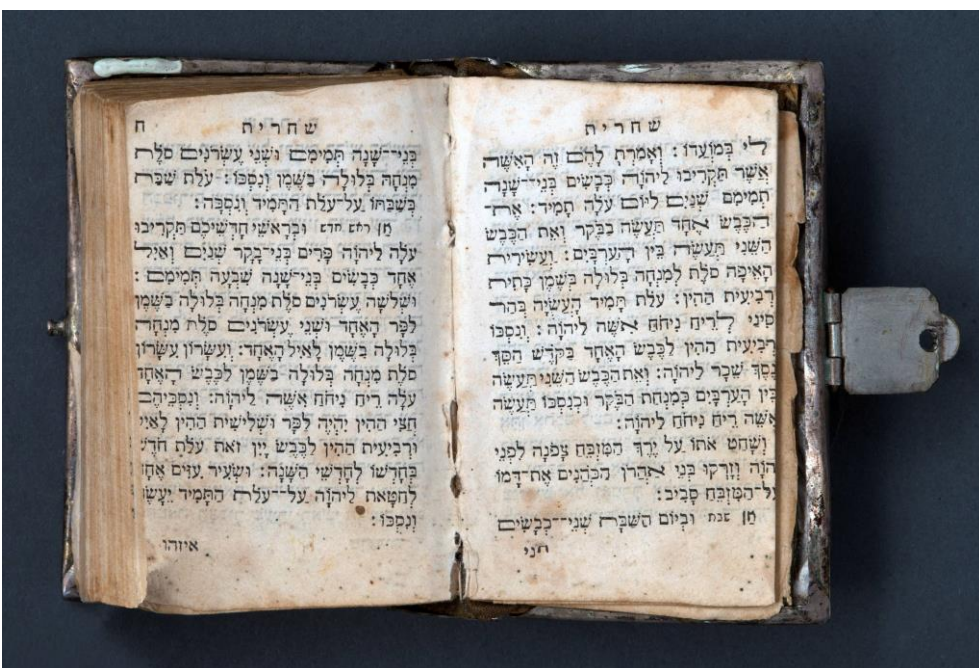 שחרית
לי בְּמוֹעֲדוֹ: וְאָמַרְתָּ לָהֶם זֶה הָאִשֶּׁה
אֲשֶׁר תַּקְרִיבוּ לַיהוָֹה כְּבָשִׂים בְּנֵי־שָׁנָה
תְמִימִם שְׁנַיִם לַיּוֹם עֹלָה תָמִיד: אֶת
הַכֶּבֶשׂ אֶחָד תַּעֲשֶׂה בַבֹּקֶר וְאֵת הַכֶּבֶשׂ
הַשֵּׁנִי תַּעֲשֶׂה בֵּין הָעַרְבָּיִם: וַעֲשִׂירִית
הָאֵיפָה סֹלֶת לְמִנְחָה בְּלוּלָה בְּשֶׁמֶן כָּתִית
רְבִיעִית הַהִין: עֹלַת תָּמִיד הָעֲשֻׂיָה בְּהַר
סִינַי לְרֵיחַ נִיחֹחַ אִשֶּׁה לַיהוָֹה: וְנִסְכּוֹ
רְבִיעִית הַהִין לַכֶּבֶשׂ הָאֶחָד בַּקֹּדֶשׁ הַסֵּךְ
נֶסֶךְ שֵׁכָר לַיהוָֹה: וְאֵת הַכֶּבֶשׂ הַשֵּׁנִי תַּעֲשֶׂה
בֵּין הָעַרְבָּיִם כְּמִנְחַת הַבֹּקֶר וּכְנִסְכּוֹ תַּעֲשֶׂה
אִשֵּׁה רֵיחַ נִיחֹחַ לַיהוָֹה:
וְשָׁחַט אֹתוֹ עַל יֶרֶךְ הַמִּזְבֵּחַ צָפֹנָה לִפְנֵי
יהוָֹה וְזָרְקוּ בְּנֵי אַהֲרֹן הַכֹּהֲנִים אֶת־דָּמוֹ
עַל־הַמִּזְבֵּחַ סָבִיב:
חן שבת וּבְיוֹם הַשַּׁבָּת שְׁנֵי־כְבָשִׂים
בני
שחרית ח
בְּנֵי־שָׁנָה תְּמִימִם וּשְׁנֵי עֶשְׂרֹנִים סֹלֶת
מִנְחָה בְּלוּלָה בַשֶּׁמֶן וְנִסְכּוֹ: עֹלַת שַׁבַּת
בְּשַׁבַּתּוֹ עַל־עֹלַת הַתָּמִיד וְנִסְכָּהּ:
חן ראש חדש וּבְרָאשֵׁי חָדְשֵׁיכֶם תַּקְרִיבוּ
עֹלָה לַיהוָֹה פָּרִים בְּנֵי־בָקָר שְׁנַיִם וְאַיִל
אֶחָד כְּבָשִׂים בְּנֵי־שָׁנָה שִׁבְעָה תְּמִימִם:
וּשְׁלֹשָׁה עֶשְׂרֹנִים סֹלֶת מִנְחָה בְּלוּלָה בַשֶּׁמֶן
לַפָּר הָאֶחָד וּשְׁנֵי עֶשְׂרֹנִים סֹלֶת מִנְחָה
בְּלוּלָה בַשֶּׁמֶן לָאַיִל הָאֶחָד: וְעִשָּׂרוֹן עִשָּׂרוֹן
סֹלֶת מִנְחָה בְּלוּלָה בַשֶּׁמֶן לַכֶּבֶשׂ הָאֶחָד
עֹלָה רֵיחַ נִיחֹחַ אִשֶּׁה לַיהוָֹה: וְנִסְכֵּיהֶם
חֲצִי הַהִין יִהְיֶה לַפָּר וּשְׁלִישִׁית הַהִין לָאַיִל
וּרְבִיעִית הַהִין לַכֶּבֶשׂ יָיִן זֹאת עֹלַת חֹדֶשׁ
בְּחָדְשׁוֹ לְחָדְשֵׁי הַשָּׁנָה: וּשְׂעִיר עִזִּים אֶחָד
לְחַטָּאת לַיהוָֹה עַל־עֹלַת הַתָּמִיד יֵעָשֶׂה
וְנִסְכּוֹ:
איזהו